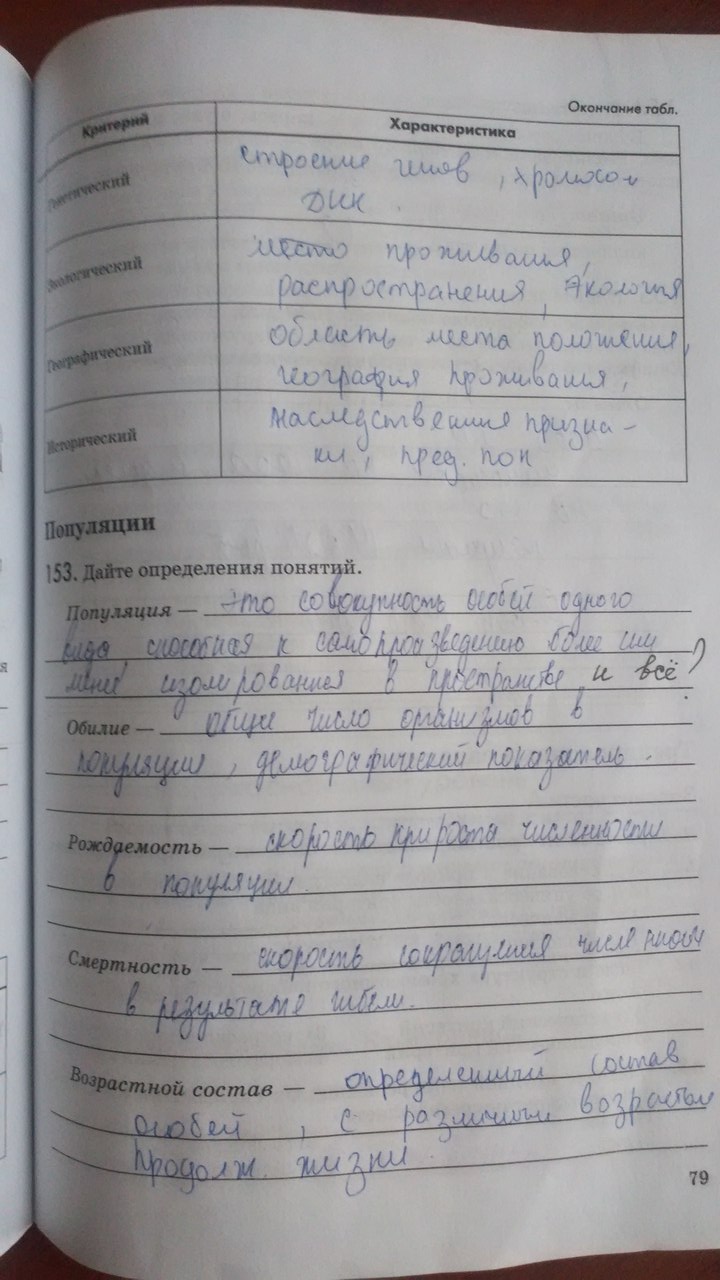 Окончание табл.
Критерий Характеристика
Генетический строение генов, хромосом
ДНК.
Экологический место проживания,
распространения, экология
Географический область места положения,
география проживания,
Исторический наследственния призна-
ки, пред. пок
Популяции
153. Дайте определения понятий.
Популяция — это совокупность особей одного
вида способная к самопроизведению более или
менее изолирования в пространстве и всё?
Обилие — общие число организмов в
популяции, демографический показатель.
Рождаемость — скорость прироста численности
в популяции
Смертность — скорость сокращения числе
в результате гибели.
Возрастной состав — определенный состав
особей, с различным возрастом
продолж. жизни.
79